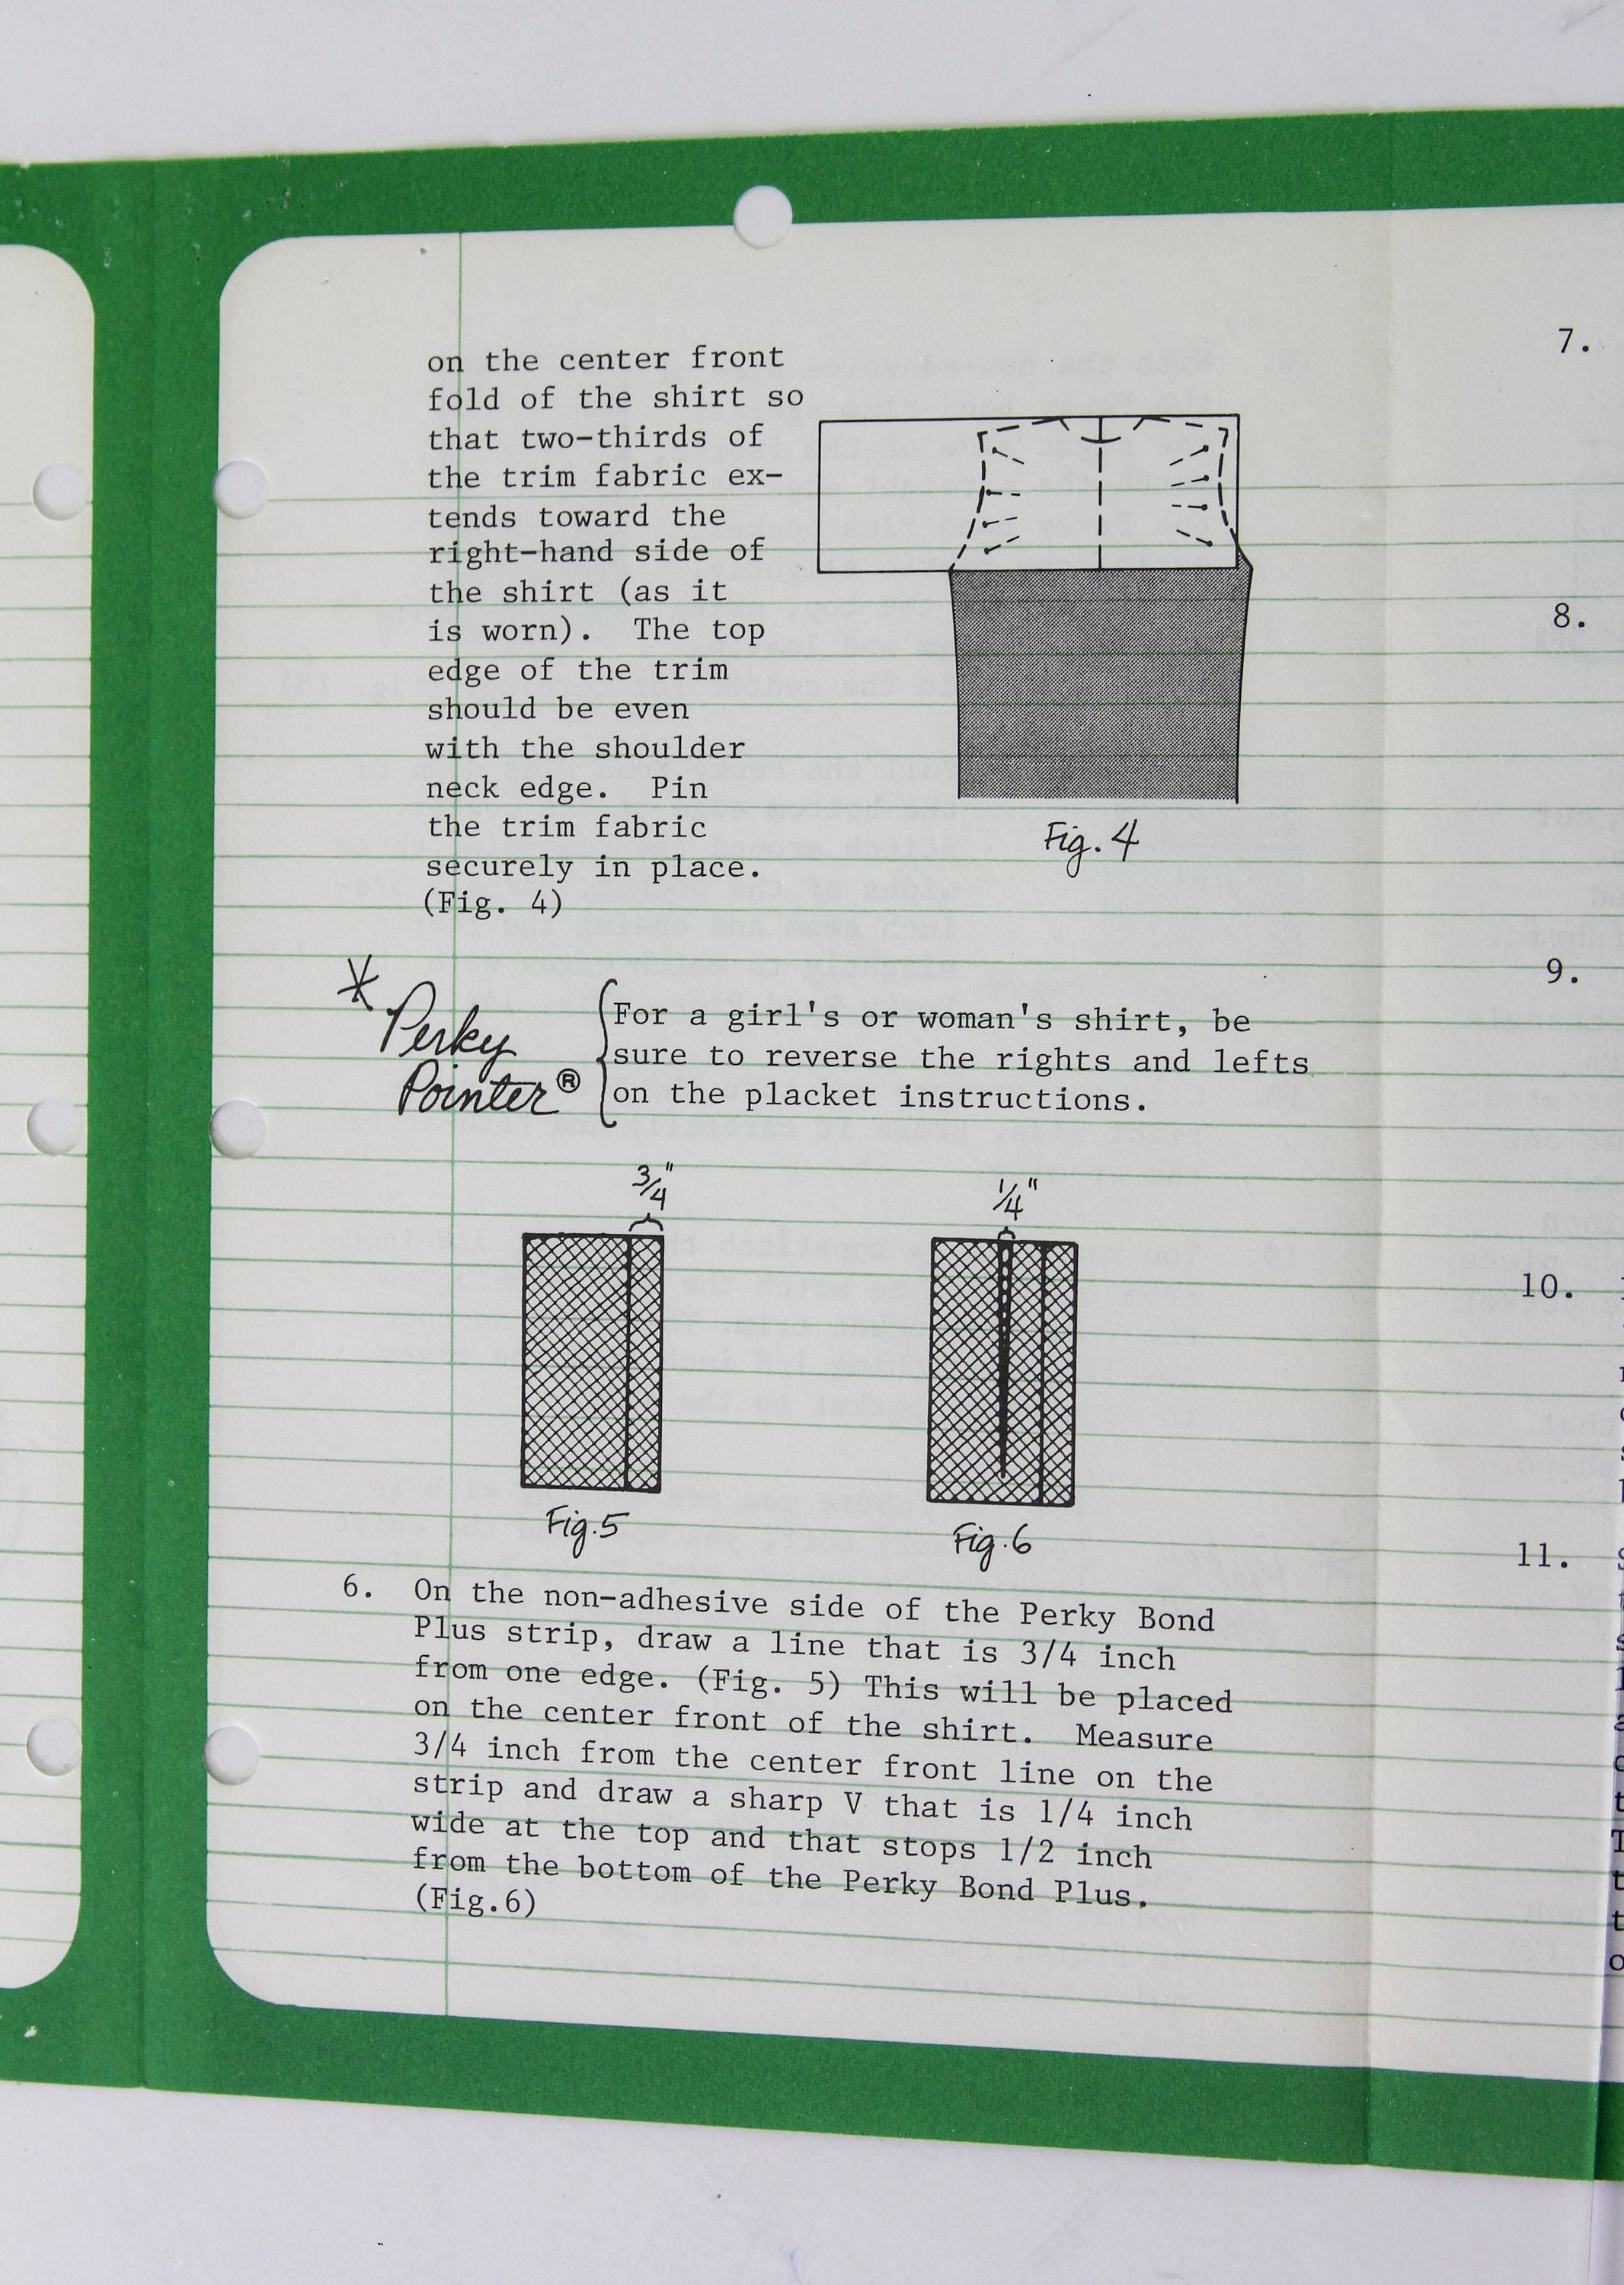 on the center front
fold of the shirt so
that two-thirds of
the trim fabric ex-
tends toward the
right-hand side of
the shirt (as it
is worn).  The top
edge of the trim
should be even
with the shoulder
neck edge.  Pin
the trim fabric
securely in place.
(Fig. 4)
Fig. 4
*
Perky
Pointer®
For a girl's or woman's shirt, be
sure to reverse the rights and lefts
on the placket instructions.
3/4"
1/4"
Fig.5
Fig.6
6. On the non-adhesive side of the Perky Bond
Plus strip, draw a line that is 3/4 inch
from one edge. (Fig. 5) This will be placed
on the center front of the shirt.  Measure
3/4 inch from the center front line on the
strip and draw a sharp V that is 1/4 inch
wide at the top and that stops 1/2 inch
from the bottom of the Perky Bond Plus.
(Fig.6)
7.
8.
9.
10.
11.